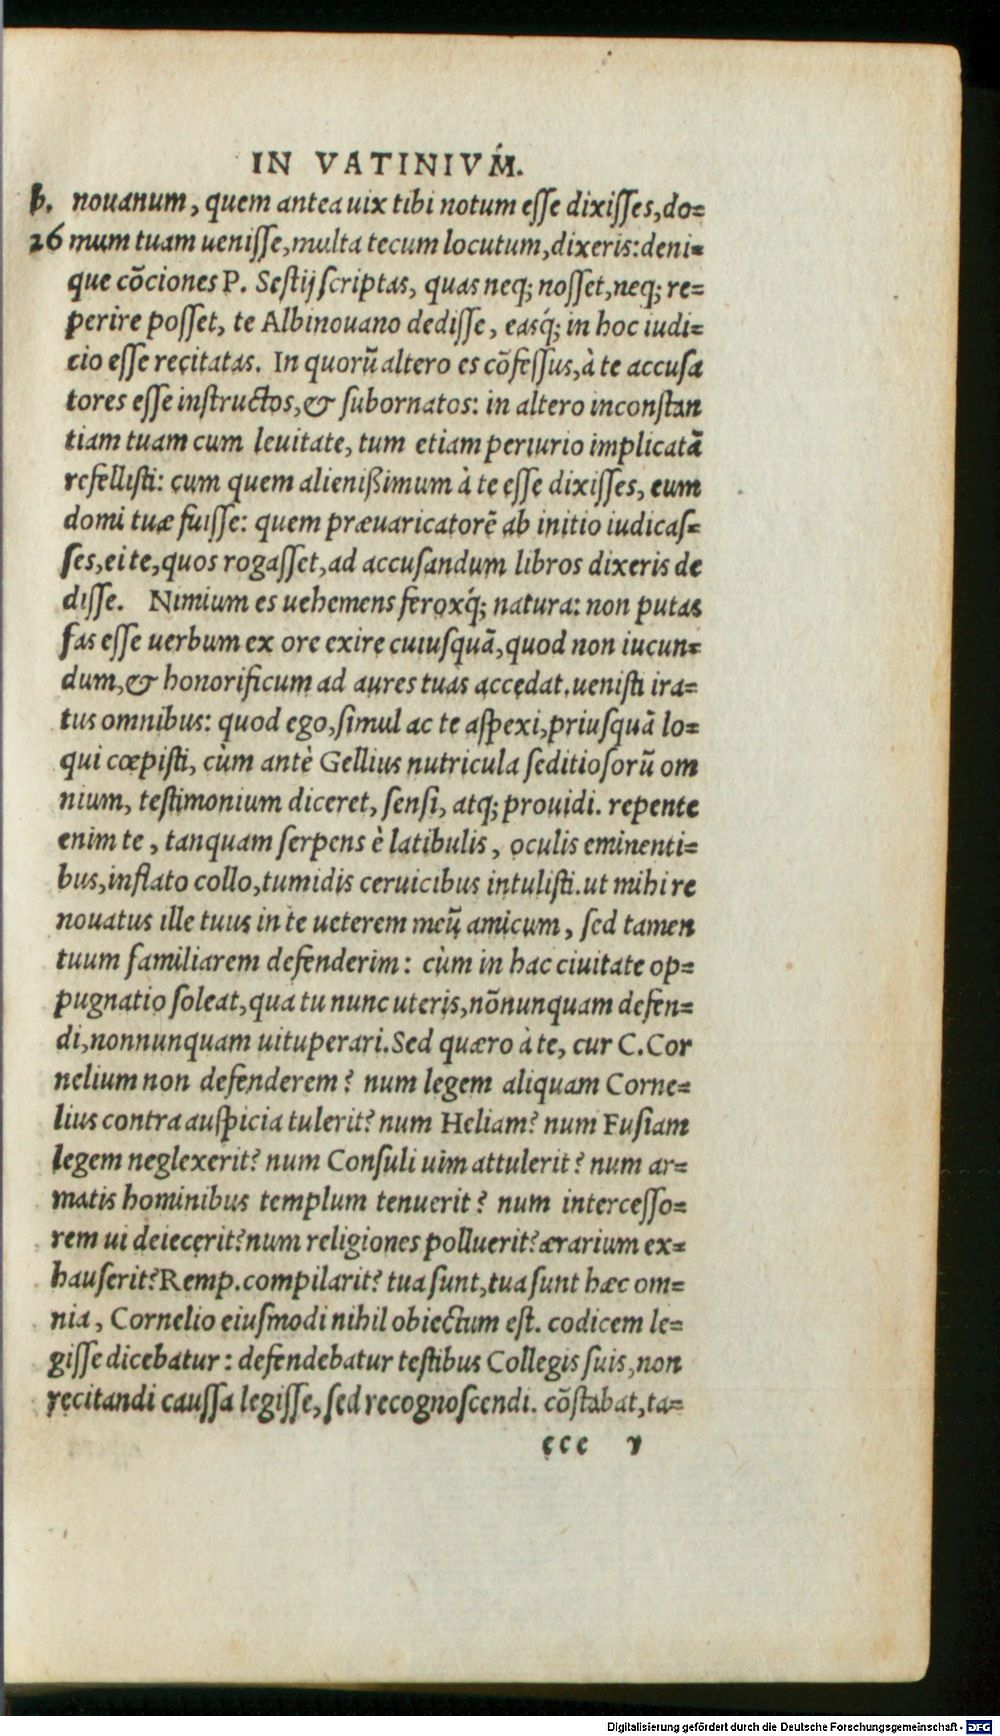 IN VATINIVḾ.
b. nouanum, quem antea uix tibi notum esse dixisses, do=
26 mum tuam uenisse, multa tecum locutum, dixeris: deni=
que cōciones P. Sestij scriptas, quas neq; nosset, neq; re=
perire posset, te Albinouano dedisse, easq́; in hoc iudi=
cio esse recitatas. In quorū altero es cōfessus, à te accusa
tores esse instructos, & subornatos: in altero inconstan
tiam tuam cum leuitate, tum etiam periurio implicatā
refellisti: cum quem alienißimum à te esse dixisses, eum
domi tuæ fuisse: quem præuaricatorē ab initio iudicas=
ses, ei te, quos rogasset, ad accusandum libros dixeris de
disse. Nimium es uehemens feroxq́; natura: non putas
fas esse uerbum ex ore exire cuiusquā, quod non iucun=
dum, & honorificum ad aures tuas accedat. uenisti ira=
tus omnibus: quod ego, simul ac te aspexi, priusquā lo=
qui cœpisti, cùm antè Gellius nutricula seditiosorū om
nium, testimonium diceret, sensi, atq; prouidi. repente
enim te, tanquam serpens è latibulis, oculis eminenti=
bus, inflato collo, tumidis ceruicibus intulisti. ut mihi re
nouatus ille tuus in te ueterem meū amicum, sed tamen
tuum familiarem defenderim: cùm in hac ciuitate op=
pugnatio soleat, qua tu nunc uteris, nōnunquam defen=
di, nonnunquam uituperari. Sed quæro à te, cur C. Cor
nelium non defenderem? num legem aliquam Corne=
lius contra auspicia tulerit? num Heliam? num Fusiam
legem neglexerit? num Consuli uim attulerit? num ar=
matis hominibus templum tenuerit? num intercesso=
rem ui deiecerit? num religiones polluerit? ærarium ex=
hauserit? Remp. compilarit? tua sunt, tua sunt hæc om=
nia, Cornelio eiusmodi nihil obiectum est. codicem le=
gisse dicebatur: defendebatur testibus Collegis suis, non
recitandi caussa legisse, sed recognoscendi. cōstabat, ta=
ccc v
Digitalisierung gefördert durch die Deutsche Forschungsgemeinschaft - DFG